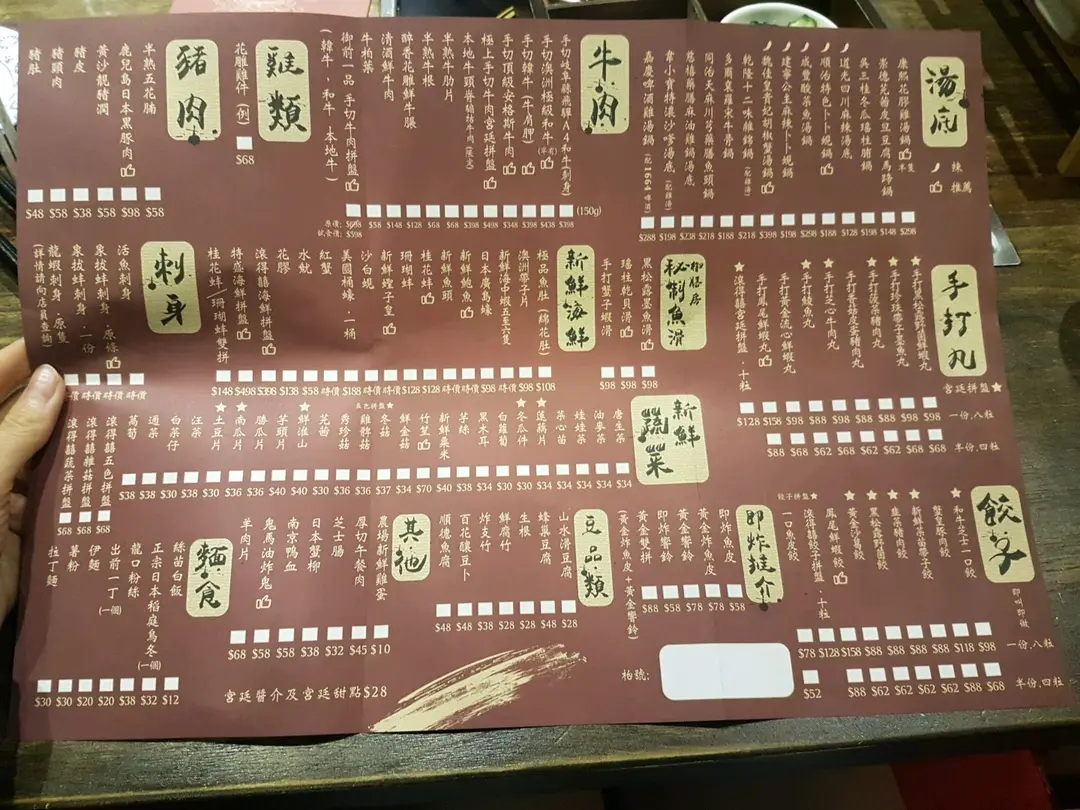 湯底
辣
推薦
康熙花膠雞湯鍋 半隻 $298
崇德芫茜皮蛋豆腐馬蹄鍋 $148
吳三桂冬瓜瑤柱脯鍋 $198
道光四川麻辣湯底 $128
順治特色卜卜蜆鍋 $188
咸豐酸菜魚湯鍋 $298
建寧公主麻辣卜卜蜆鍋 $198
魏佳皇貴妃胡椒蟹湯鍋 $398
乾隆十二味雞錦鍋 (配雞湯) $218
多爾袞羅宋牛骨鍋 $188
同治天麻川芎藥膳魚頭鍋 $218
慈禧藥膳麻油雞鍋湯底 $238
韋小寶特濃沙爹湯底 (配雞湯) $198
嘉慶啤酒雞湯鍋 (配1664啤酒) $288
牛肉
手切岐阜縣飛驒A4和牛(刺身) (150g) $398
手切澳洲極級和牛 $438
手切韓牛(牛肩胛) $398
手切頂級安格斯牛肉 $348
極上手切牛肉宮廷拼盤 $498
本地牛頸脊封牛肉(限定) $398
半熟牛肋片 $68
半熟牛根 $68
醉香花雕鮮牛䐁 $128
清酒鮮牛肉 $148
牛柏葉 $58
御前一品 手切牛肉拼盤 (韓牛,和牛,本地牛)
原價:$698
試食價:$598
雞類
花雕雞件(例) $68
豬肉
半熟五花腩 $58
鹿兒島日本黑豚肉 $98
黃沙靚豬潤 $58
豬皮 $38
豬頸肉 $58
豬肚 $48
手打丸
宮廷拼盤★
一份,八粒
半份,四粒
手打黑松露野菌鮮蝦丸 $98 $68
手打珍珠帶子墨魚丸 $98 $68
手打菠菜豬肉丸 $88 $62
手打香菇皮蛋豬肉丸 $88 $62
手打芝心牛肉丸 $98 $68
手打鯪魚丸 $88 $62
手打黃金流心鮮蝦丸 $98 $68
手打鳳尾鮮蝦丸 $158 $88
滾得囍宮廷拼盤.十粒 $128
御膳房
秘製魚滑
黑松露墨魚滑 $98
瑤柱乾貝滑 $98
手打蟹子蝦滑 $98
新鮮海鮮
極品魚肚(綿花肚) $108
澳洲帶子片 $98
新鮮海中蝦五至六隻 時價
日本廣島蠔 $98
新鮮鮑魚 時價
新鮮魚頭 時價
桂花蚌 $128
珊瑚蚌 $128
新鮮螳子皇 時價
沙白蜆 時價
美國桶蠔.一桶 $188
紅蟹 時價
水魷 $58
花膠 $138
滾得囍海鮮拼盤 $398
特盛海鮮拼盤 $498
桂花蚌/珊瑚蚌雙拼 $148
刺身
活魚刺身 時價
象拔蚌刺身.原條 時價
象拔蚌刺身.一份 時價
龍蝦刺身.原隻 時價
(詳情請向店員查詢)
新鮮蔬菜
唐生菜 $34
油麥菜 $34
娃娃菜 $34
菜心苗 $34
蓮藕片 $34
冬瓜件 $30
白蘿蔔 $30
黑木耳 $34
芋絲 $38
新鮮粟米 $40
竹笙 $70
鮮金菇 $40
冬菇 $34
雞髀菇 $37
秀珍菇 $36
五色拼盤★
芫茜 $30
鮮淮山 $40
芋頭片 $40
勝瓜片 $36
南瓜片 $36
土豆片 $30
汪菜 $38
白菜仔 $30
通菜 $38
萵筍 $38
滾得囍五色拼盤 $68
滾得囍雜菇拼盤 $68
滾得囍蔬菜拼盤 $68
餃子
即叫即做
餃子拼盤★
一份,八粒
半份,四粒
和牛芝士一口餃 $98 $68
蟹皇豚肉餃 $118 $88
新鮮茄蓉帶子餃 $88 $62
韭菜豬肉餃 $88 $62
黑松露野菌餃 $88 $62
黃金沙翼餃 $88 $62
鳳尾鮮蝦餃 $158 $88
滾得囍餃子拼盤.十粒 $128
一口魚皮餃 $78 $52
即炸推介
即炸魚皮 $58
黃金炸魚皮 $78
黃金響鈴 $78
即炸響鈴 $58
黃金雙拼 $88
(黃金炸魚皮+黃金響鈴)
枱號:
豆品類
山水滑豆腐 $28
蜂巢豆腐 $48
生根 $28
鮮腐竹 $28
炸支竹 $38
百花釀豆卜 $48
順德魚腐 $48
其他
農場新鮮雞蛋 $10
厚切午餐肉 $45
芝士腸 $32
日本蟹柳 $38
南京鴨血 $58
鬼馬油炸鬼 $58
羊肉片 $68
麵食
絲苗白飯 $12
正宗日本稻庭烏冬(一個) $32
龍口粉絲 $38
出前一丁(一個) $20
伊麵 $20
薯粉 $30
拉丁麵 $30
宮廷醬介及宮廷甜點$28